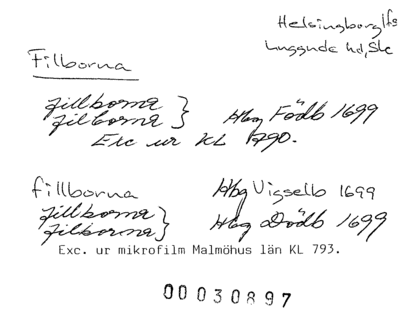 Helsingborg lfs
Luggude hd, Sk
Fillborna
fillborna }
fillborna } Hbg Födb 1699
Exc ur KL 790.
fillborna Hbg Vigselb 1699
fillborna }
fillborna } Hbg Dödb 1699
Exc. ur mikrofilm Malmöhus län KL 793.
00030897